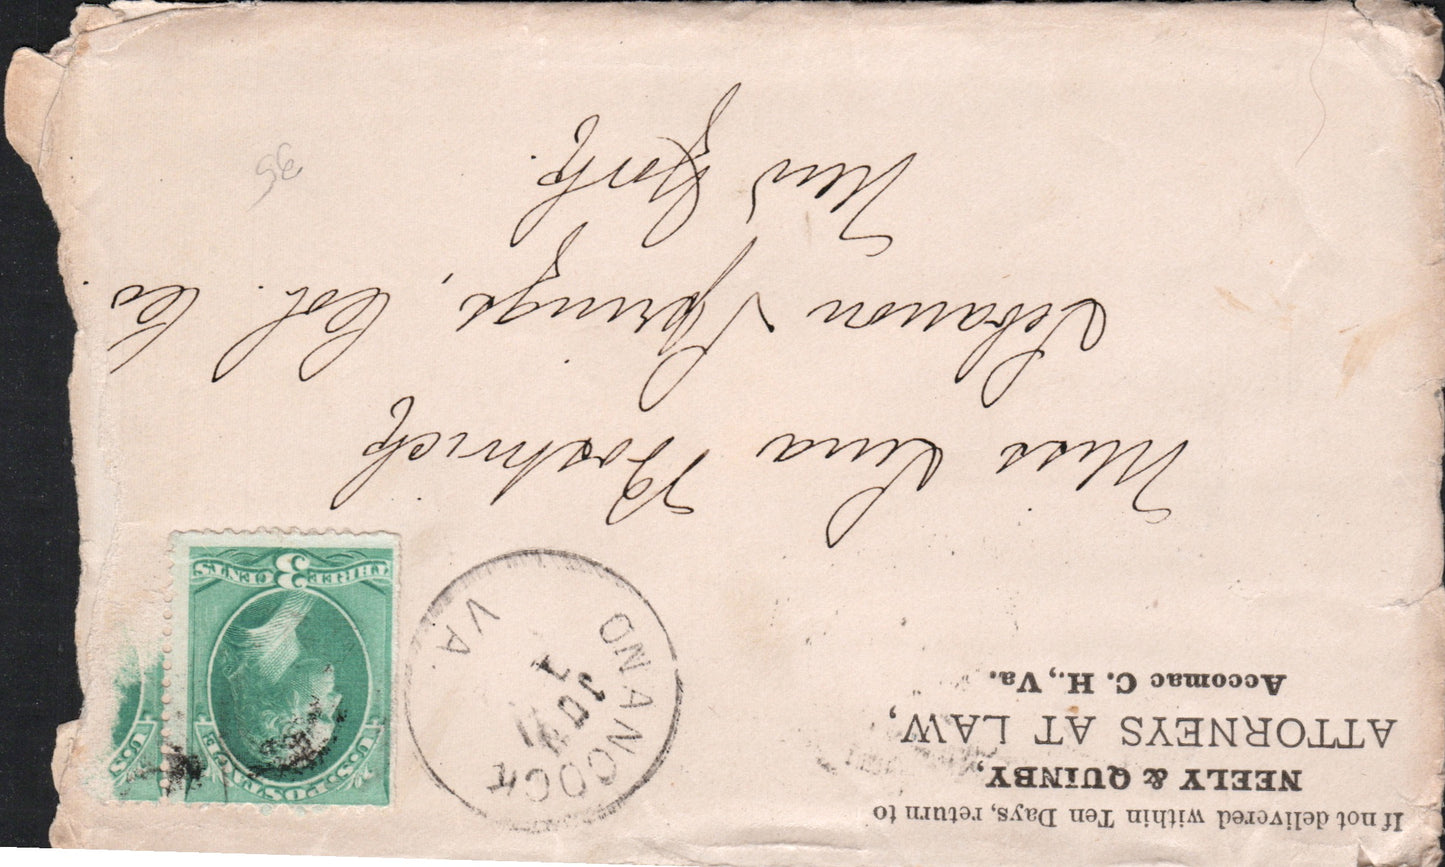 If not delivered within Ten Days, return to
NEELY & QUINBY,
ATTORNEYS AT LAW,
Accomac C. H., Va.
ONANCOCK
VA.
U.S. POSTAGE
3
THREE CENTS
U.S.
Miss Lina Bostwick
Lebanon Springs, Col. Co
New York.